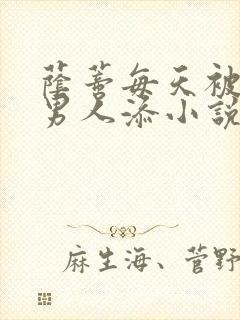 蔭蒂每天被
男人添小說
麻生海、菅野